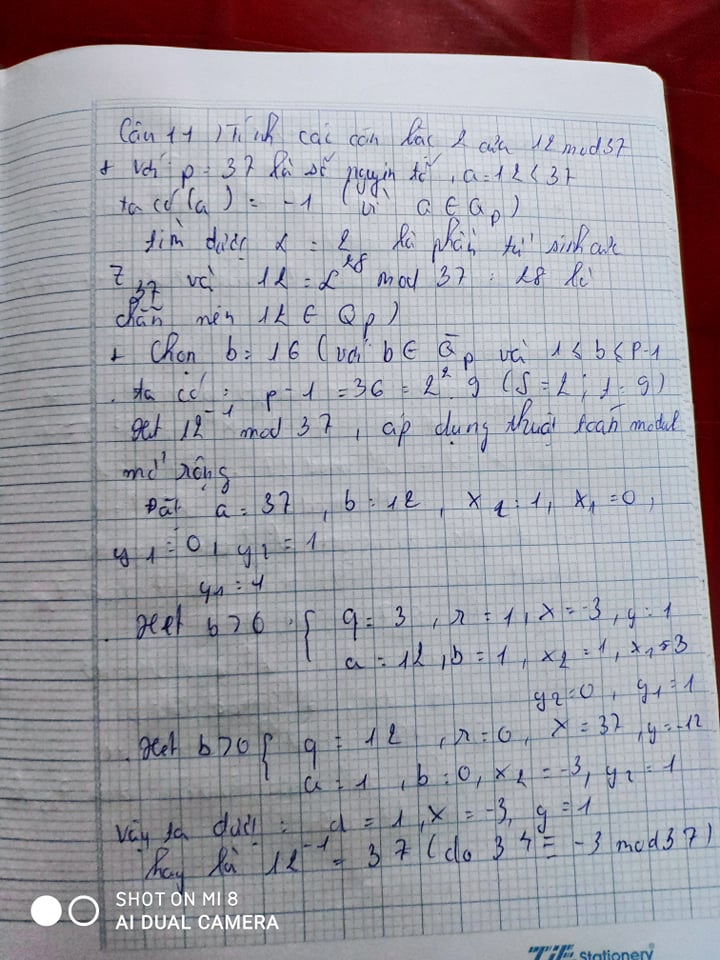 Câu 11) Tính các căn bậc 2 của 12 mod 37
+ Với p = 37 là số nguyên tố, a = 12 < 37
ta có (a) = -1 (vì a ∈ Q_p)
tìm được α = 2 là phần tử sinh của
Z_37 và 12 = 2^28 mod 37 : 28 là
chẵn nên 12 ∈ Q_p)
+ Chọn b = 16 (với b ∈ Q̄_p và 1 ≤ b ≤ p-1
. ta có : p-1 = 36 = 2^2 . 9 (S = 2 ; t = 9)
Xét 12^-1 mod 37 , áp dụng thuật toán modul
mở rộng
Đặt a = 37 , b = 12 , x_2 = 1, x_1 = 0,
y_1 = 0, y_2 = 1
y_1 = 1
. Xét b > 0 { q = 3 , r = 1, x = -3, y = 1
a = 12, b = 1, x_2 = 1, x_1 = 3
y_2 = 0 , y_1 = 1
. Xét b > 0 { q = 12 , r = 0, x = 37, y = -12
a = 1 , b = 0, x_2 = -3, y_2 = 1
Vậy ta được : d = 1, x = -3, y = 1
hay là 12^-1 = 37 (do 34 ≡ -3 mod 37)
SHOT ON MI 8
AI DUAL CAMERA
TiE Stationery